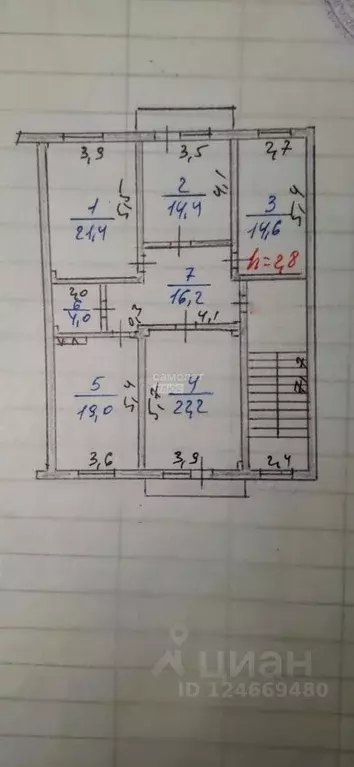 3,9
3,5
2,7
1
21,4
5,5
2
14,4
4,1
3
14,6
5,4
h=2,8
7
16,2
2,0
6
4,0
2,0
4,1
самолет
плюс
5
19,0
5,4
4
22,2
5,7
3,6
3,9
2,4
циан
ID 124669480